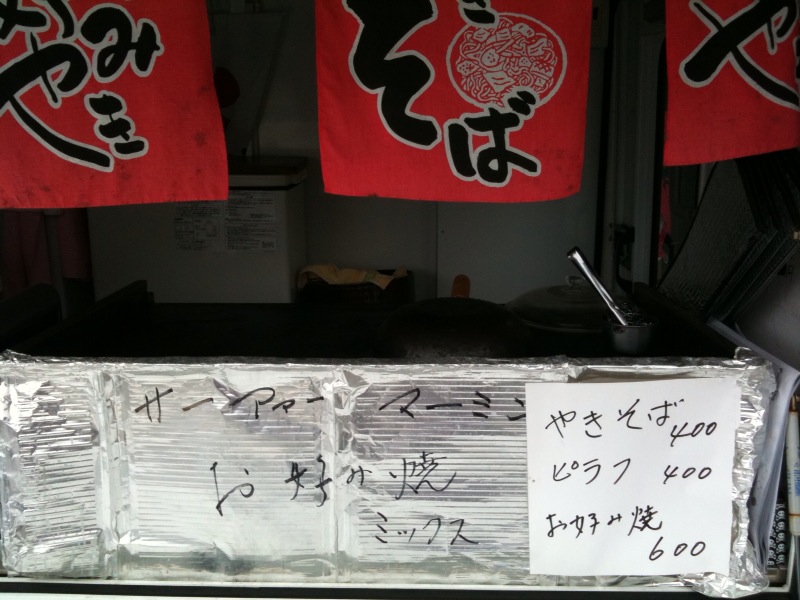 みやき
そば
やきそば 400
ピラフ 400
お好み焼
600
マーミン
お好み焼
ミックス